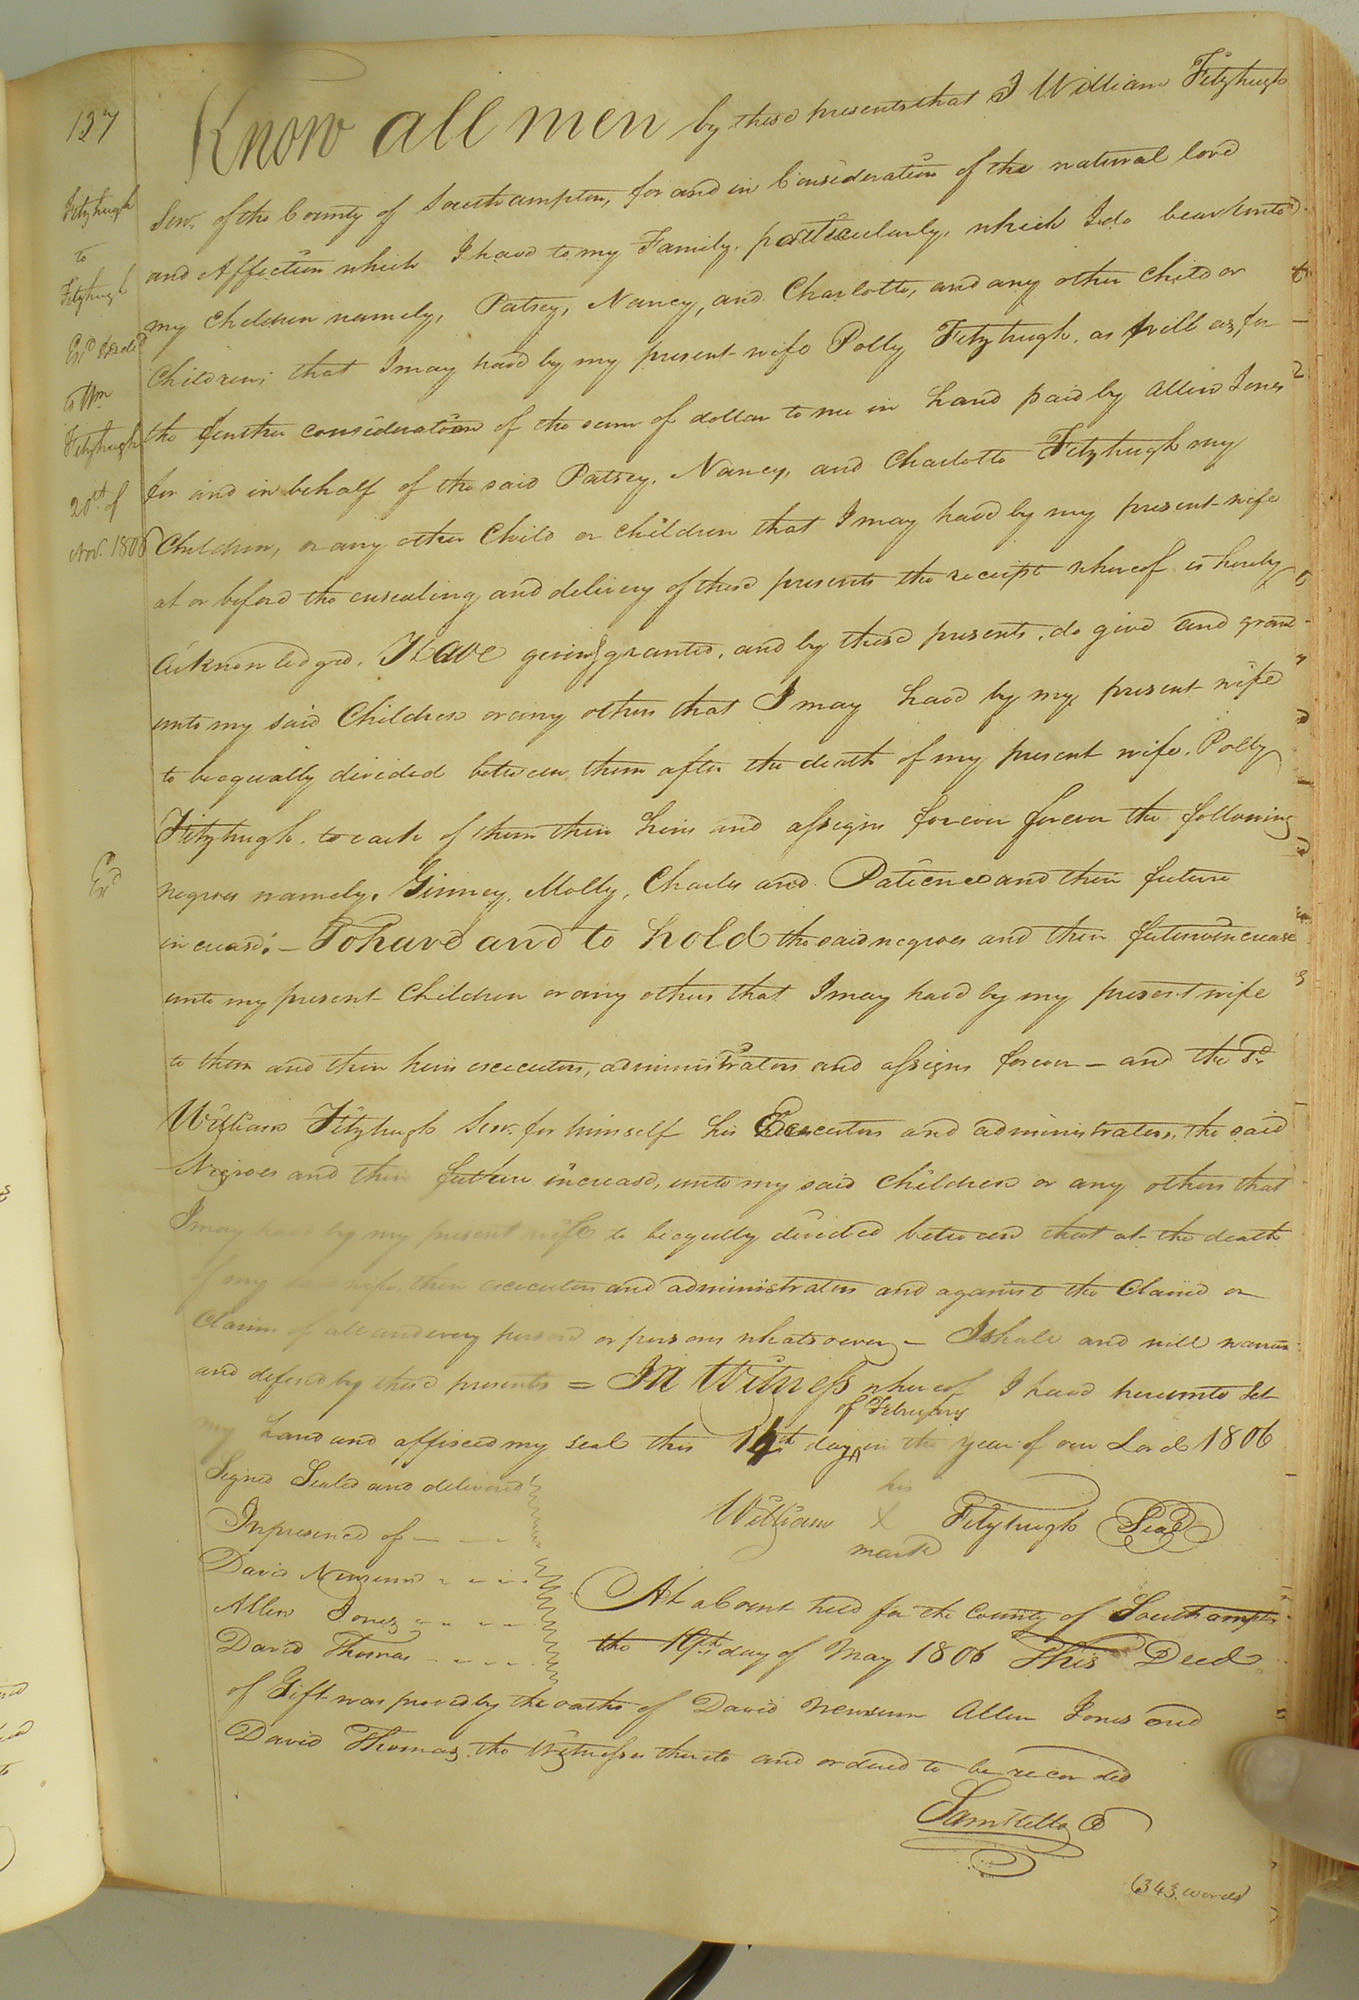 137
Know all men by these presents that I William Fitzhugh
Senr. of the County of Southampton, for and in Consideration of the natural love
and Affection which I have to my Family, particularly, which I do bear unto
my Children namely, Patsey, Nancy, and Charlotte, and any other Child or
Children; that I may have by my present wife Polly Fitzhugh, as well as for
the further consideration of the sum of dollar to me in hand paid by Allen Jones
for and in behalf of the said Patsey, Nancy, and Charlotte Fitzhugh my
Children, or any other Child or children that I may have by my present wife
at or before the ensealing and delivery of these presents the receipt whereof is hereby
Acknowledged, Have given & granted, and by these presents, do give and grant
unto my said Children or any others that I may have by my present wife
to be equally divided between them after the death of my present wife, Polly
Fitzhugh, to each of them their heirs and assigns forever forever the following
negroes namely, Ginney, Molly, Charles and Patience and their future
increase: – To have and to hold the said negroes and their future increase
unto my present Children or any others that I may have by my present wife
to them and their heirs executors, administrators and assigns forever – and the sd.
William Fitzhugh Senr. for himself his Executors and administrators, the said
Negroes and their future increase, unto my said Children or any others that
I may have by my present wife to be equally divided between them at the death
of my said wife their executors and administrators and against the Claim or
Claims of all and every person or persons whatsoever – I shall and will warrant
and defend by these presents = In Witness whereof I have hereunto Set
of February
my hand and affixed my seal this 14th day ^ in the year of our Lord 1806
Signed Sealed and delivered
In presence of –
David Newsum
Allen Jones
David Thomas
his
William X Fitzhugh Seal
mark
At a Court held for the County of Southampton
the 19th day of May 1806 This Deed
of Gift was proved by the oaths of David Newsum Allen Jones and
David Thomas the Witnesses thereto and ordered to be recorded
Sam Kello C
(343 words)
Fitzhugh
to
Fitzhugh
Exd & deld
to Wm
Fitzhugh
20th of
Nov. 1806
Exd